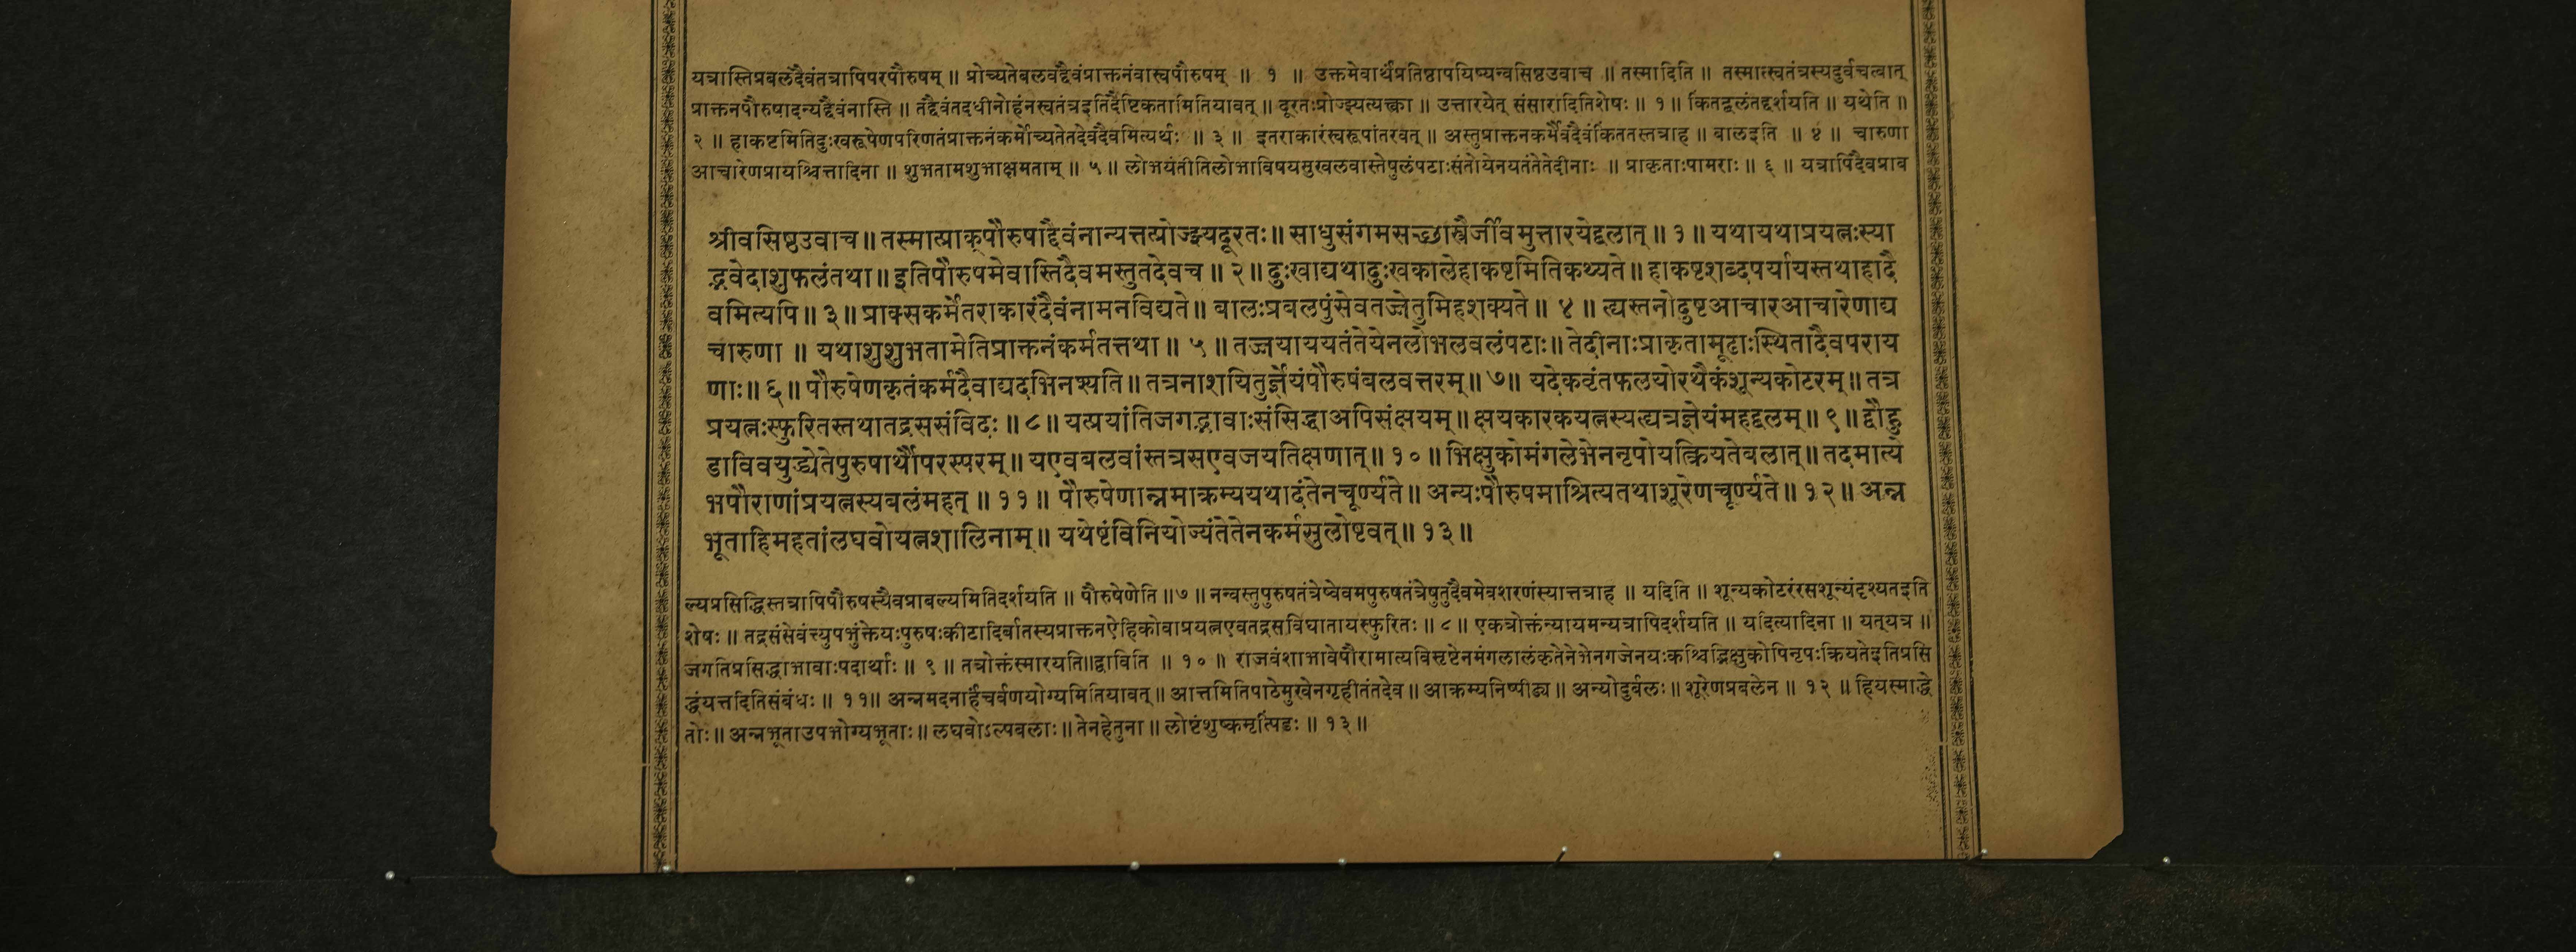 यत्रास्तिप्रबलंदैवंतत्रापिपरपौरुषम् ॥ प्रोच्यतेबलवद्दैवंप्राक्तनंवास्वपौरुषम् ॥ १ ॥ उक्तमेवार्थंप्रतिष्ठापयिष्यन्वसिष्ठउवाच ॥ तस्मादिति ॥ तस्मात्स्वतंत्रस्यदुर्वचत्वात्
प्राक्तनपौरुषादन्यद्दैवंनास्ति ॥ तद्दैवंतदधीनोहंनस्वतंत्रइतिदैष्टिकतामितियावत् ॥ दूरतःप्रोज्झ्यत्यक्त्वा ॥ उत्तारयेत् संसारादितिशेषः ॥ १ ॥ किंतद्बलंतद्दर्शयति ॥ यथेति ॥
२ ॥ हाकष्टमितिदुःखरूपेणपरिणतंप्राक्तनंकर्मोच्यतेतदेवदैवमित्यर्थः ॥ ३ ॥ इतराकारंस्वरूपांतरवत् ॥ अस्तुप्राक्तनकर्मैवदैवंकिंततस्तत्राह ॥ बालइति ॥ ४ ॥ चारुणा
आचारेणप्रायश्चित्तादिना ॥ शुभतामशुभाक्षमताम् ॥ ५ ॥ लोभयंतीतिलोभाविषयसुखलवास्तेषुलंपटाःसंतोयेनयतंतेतेदीनाः ॥ प्राकृताःपामराः ॥ ६ ॥ यत्रापिदैवप्राब
श्रीवसिष्ठउवाच ॥ तस्मात्प्राक्पौरुषाद्दैवंनान्यत्तत्प्रोज्झ्यदूरतः ॥ साधुसंगमसच्छास्त्रैर्जीवमुत्तारयेद्बलात् ॥ १ ॥ यथायथाप्रयत्नःस्या
द्भवेदाशुफलंतथा ॥ इतिपौरुषमेवास्तिदैवमस्तुतदेवच ॥ २ ॥ दुःखाद्यथादुःखकालेहाकष्टमितिकथ्यते ॥ हाकष्टशब्दपर्यायस्तथाहादै
वमित्यपि ॥ ३ ॥ प्राक्स्वकर्मेतराकारंदैवंनामनविद्यते ॥ बालःप्रबलपुंसेवतज्जेतुमिहशक्यते ॥ ४ ॥ ह्यस्तनोदुष्टआचारआचारेणाद्य
चारुणा ॥ यथाशुशुभतामेतिप्राक्तनंकर्मतत्तथा ॥ ५ ॥ तज्जयाययतंतेयेनलोभलवलंपटाः ॥ तेदीनाःप्राकृतामूढाःस्थितादैवपराय
णाः ॥ ६ ॥ पौरुषेणकृतंकर्मदैवाद्यदभिनश्यति ॥ तत्रनाशयितुर्ज्ञेयंपौरुषंबलवत्तरम् ॥ ७ ॥ यदेकवृंतफलयोरथैकंशून्यकोटरम् ॥ तत्र
प्रयत्नःस्फुरितस्तथातद्रससंविदः ॥ ८ ॥ यत्प्रयांतिजगद्भावाःसंसिद्धाअपिसंक्षयम् ॥ क्षयकारकयत्नस्यत्द्यत्रज्ञेयंमहद्बलम् ॥ ९ ॥ द्वौहु
डाविवयुद्ध्येतेपुरुषार्थौपरस्परम् ॥ यएवबलवांस्तत्रसएवजयतिक्षणात् ॥ १० ॥ भिक्षुकोमंगलेभेननृपोयत्क्रियतेबलात् ॥ तदमात्ये
भपौराणांप्रयत्नस्यबलंमहत् ॥ ११ ॥ पौरुषेणान्नमाक्रम्ययथादंतेनचूर्ण्यते ॥ अन्यःपौरुषमाश्रित्यतथाशूरेणचूर्ण्यते ॥ १२ ॥ अन्न
भूताहिमहतांलघवोयत्नशालिनाम् ॥ यथेष्टंविनियोज्यंतेतेनकर्मसुलोष्टवत् ॥ १३ ॥
ल्यप्रसिद्धिस्तत्रापिपौरुषस्यैवप्राबल्यमितिदर्शयति ॥ पौरुषेणेति ॥ ७ ॥ नन्वस्तुपुरुषतंत्रेष्वेवमपुरुषतंत्रेषुतुदैवमेवशरणंस्यात्तत्राह ॥ यदिति ॥ शून्यकोटरंरसशून्यंदृश्यतइति
शेषः ॥ तद्रसंसेवंत्त्युपभुंक्तेयःपुरुषःकीटादिर्वातस्यप्राक्तनऐहिकोवाप्रयत्नएवतद्रसविघातायस्फुरितः ॥ ८ ॥ एकत्रोक्तंन्यायमन्यत्रापिदर्शयति ॥ यदित्यादिना ॥ यत्‌यत्र ॥
जगतिप्रसिद्धाभावाःपदार्थाः ॥ ९ ॥ तत्रोक्तंस्मारयति॥द्वाविति ॥ १० ॥ राजवंशाभावेपौरामात्यविसृष्टेनमंगलालंकृतेनेभेनगजेनयःकश्चिद्भिक्षुकोपिनृपःक्रियतेइतिप्रसि
द्धंयत्तदितिसंबंधः ॥ ११ ॥ अन्नमदनार्हंचर्वणयोग्यमितियावत् ॥ आत्तमितिपाठेमुखेनगृहीतंतदेव ॥ आक्रम्यनिष्पीड्य ॥ अन्योदुर्बलः ॥ शूरेणप्रबलेन ॥ १२ ॥ हियस्माद्धे
तोः ॥ अन्नभूताउपभोग्यभूताः ॥ लघवोऽल्पबलाः ॥ तेनहेतुना ॥ लोष्टंशुष्कमृत्पिंडः ॥ १३ ॥